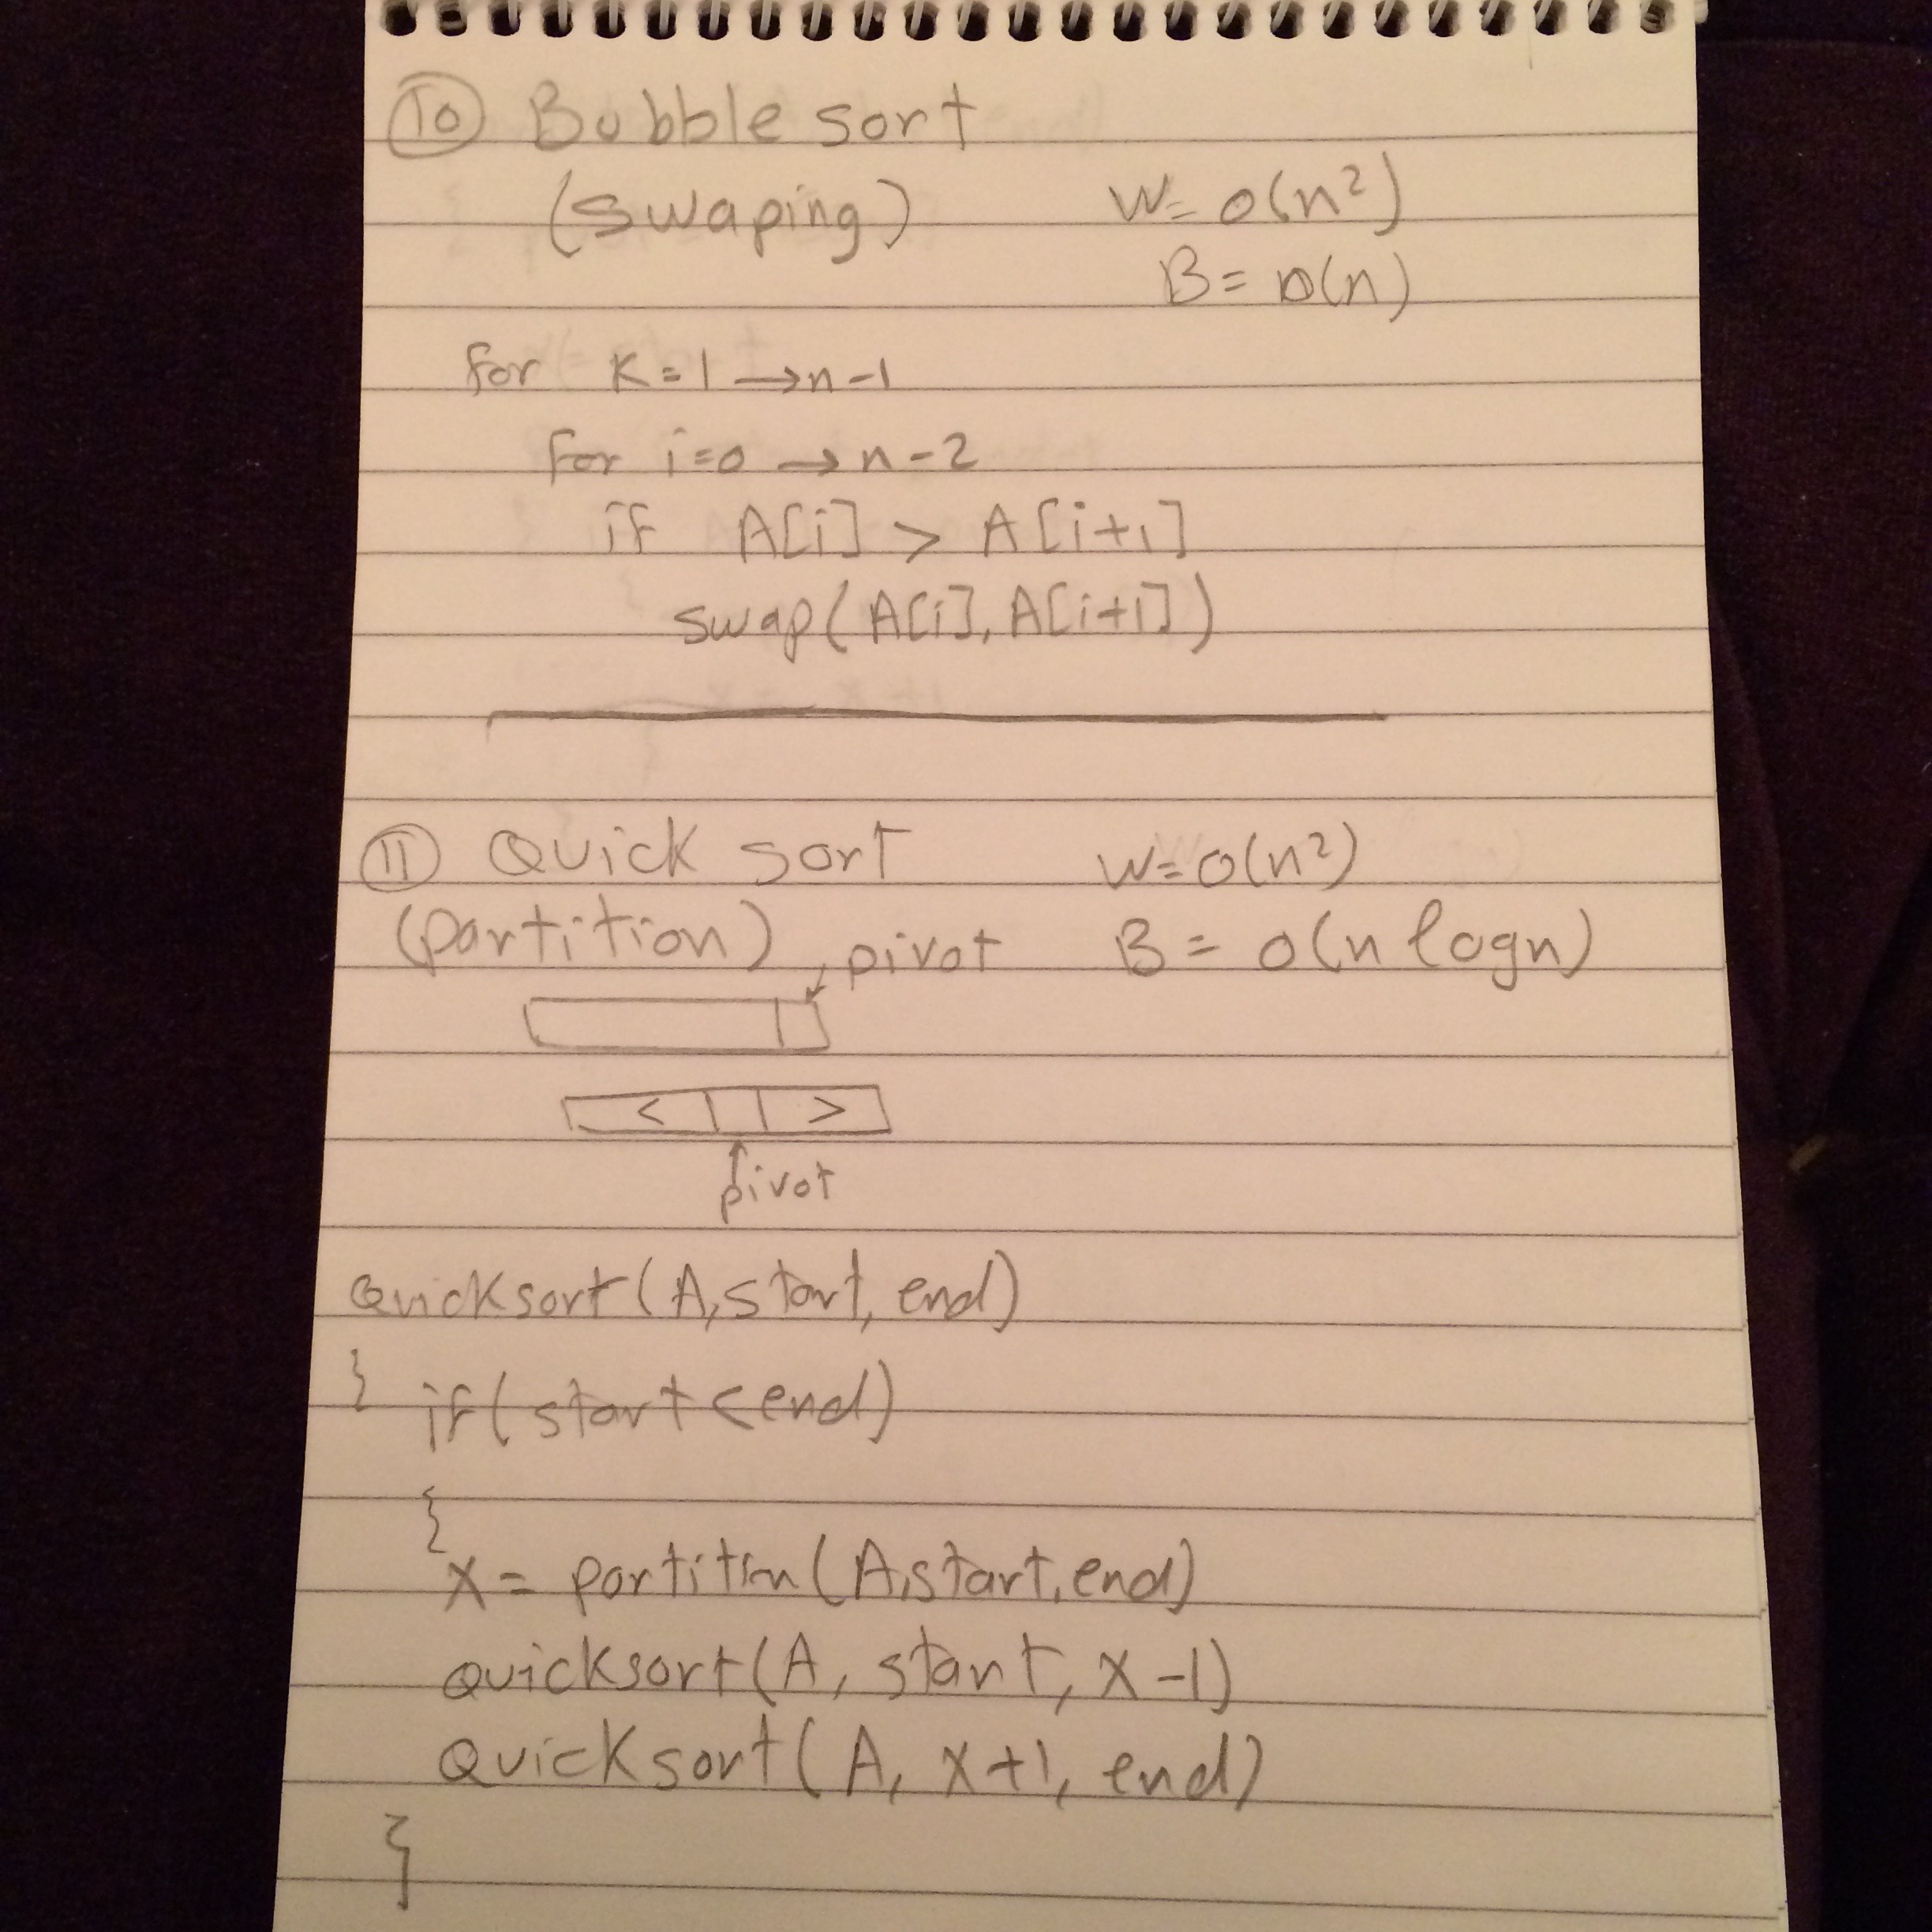 10 Bubble sort
(swaping)
W= O(n²)
B= O(n)
for K=1 →n-1
for i=0 → n-2
if A[i] > A[i+1]
swap(A[i], A[i+1])
11 Quick sort
W=O(n²)
(partition)
B= O(n logn)
pivot
< >
pivot
Quicksort(A,start, end)
} if(start<end)
{
X= partition(A,start,end)
Quicksort(A, start, X-1)
Quicksort(A, X+1, end)
}